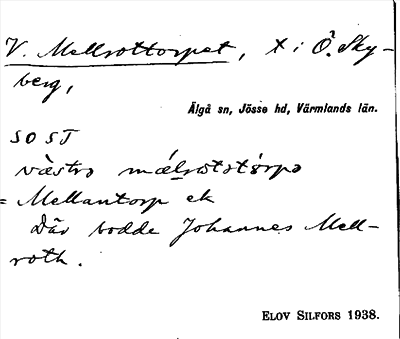 V. Mellrottorpet, x i Ö. Sky-
berg,
Älgå sn, Jösse hd, Värmlands län.
SO ST
västrə
= Mellantorp ek
Där bodde Johannes Mell-
roth.
ELOV SILFORS 1938.